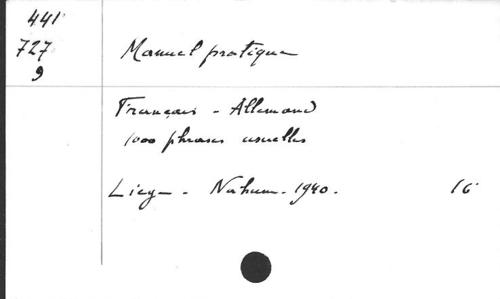 441
727
9
Manuel pratique
Français - Allemand
1000 phrases usuelles
Liège - Nahum - 1940. 16